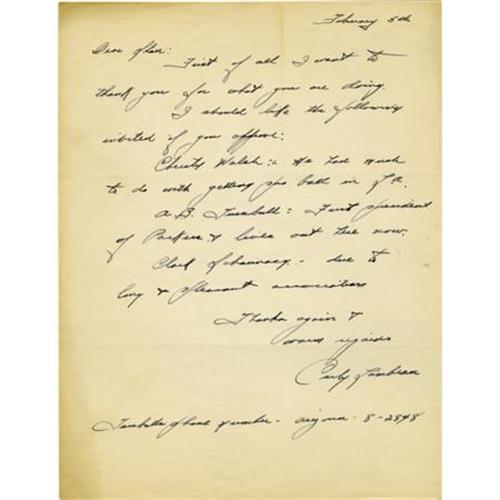 February 5th
Dear
First of all I want to
thank you for what you are doing.
I should like the following
invited if you approve:
Christy Walsh: - He had much
to do with getting pro ball in L.A.
A.B. Turnbull: First president
of Packers & lives out here now.
Clark Shaughnessy - due to
long & pleasant associations
Thanks again &
warm regards
Curly Lambeau
Turnbulls phone number - 8-2848